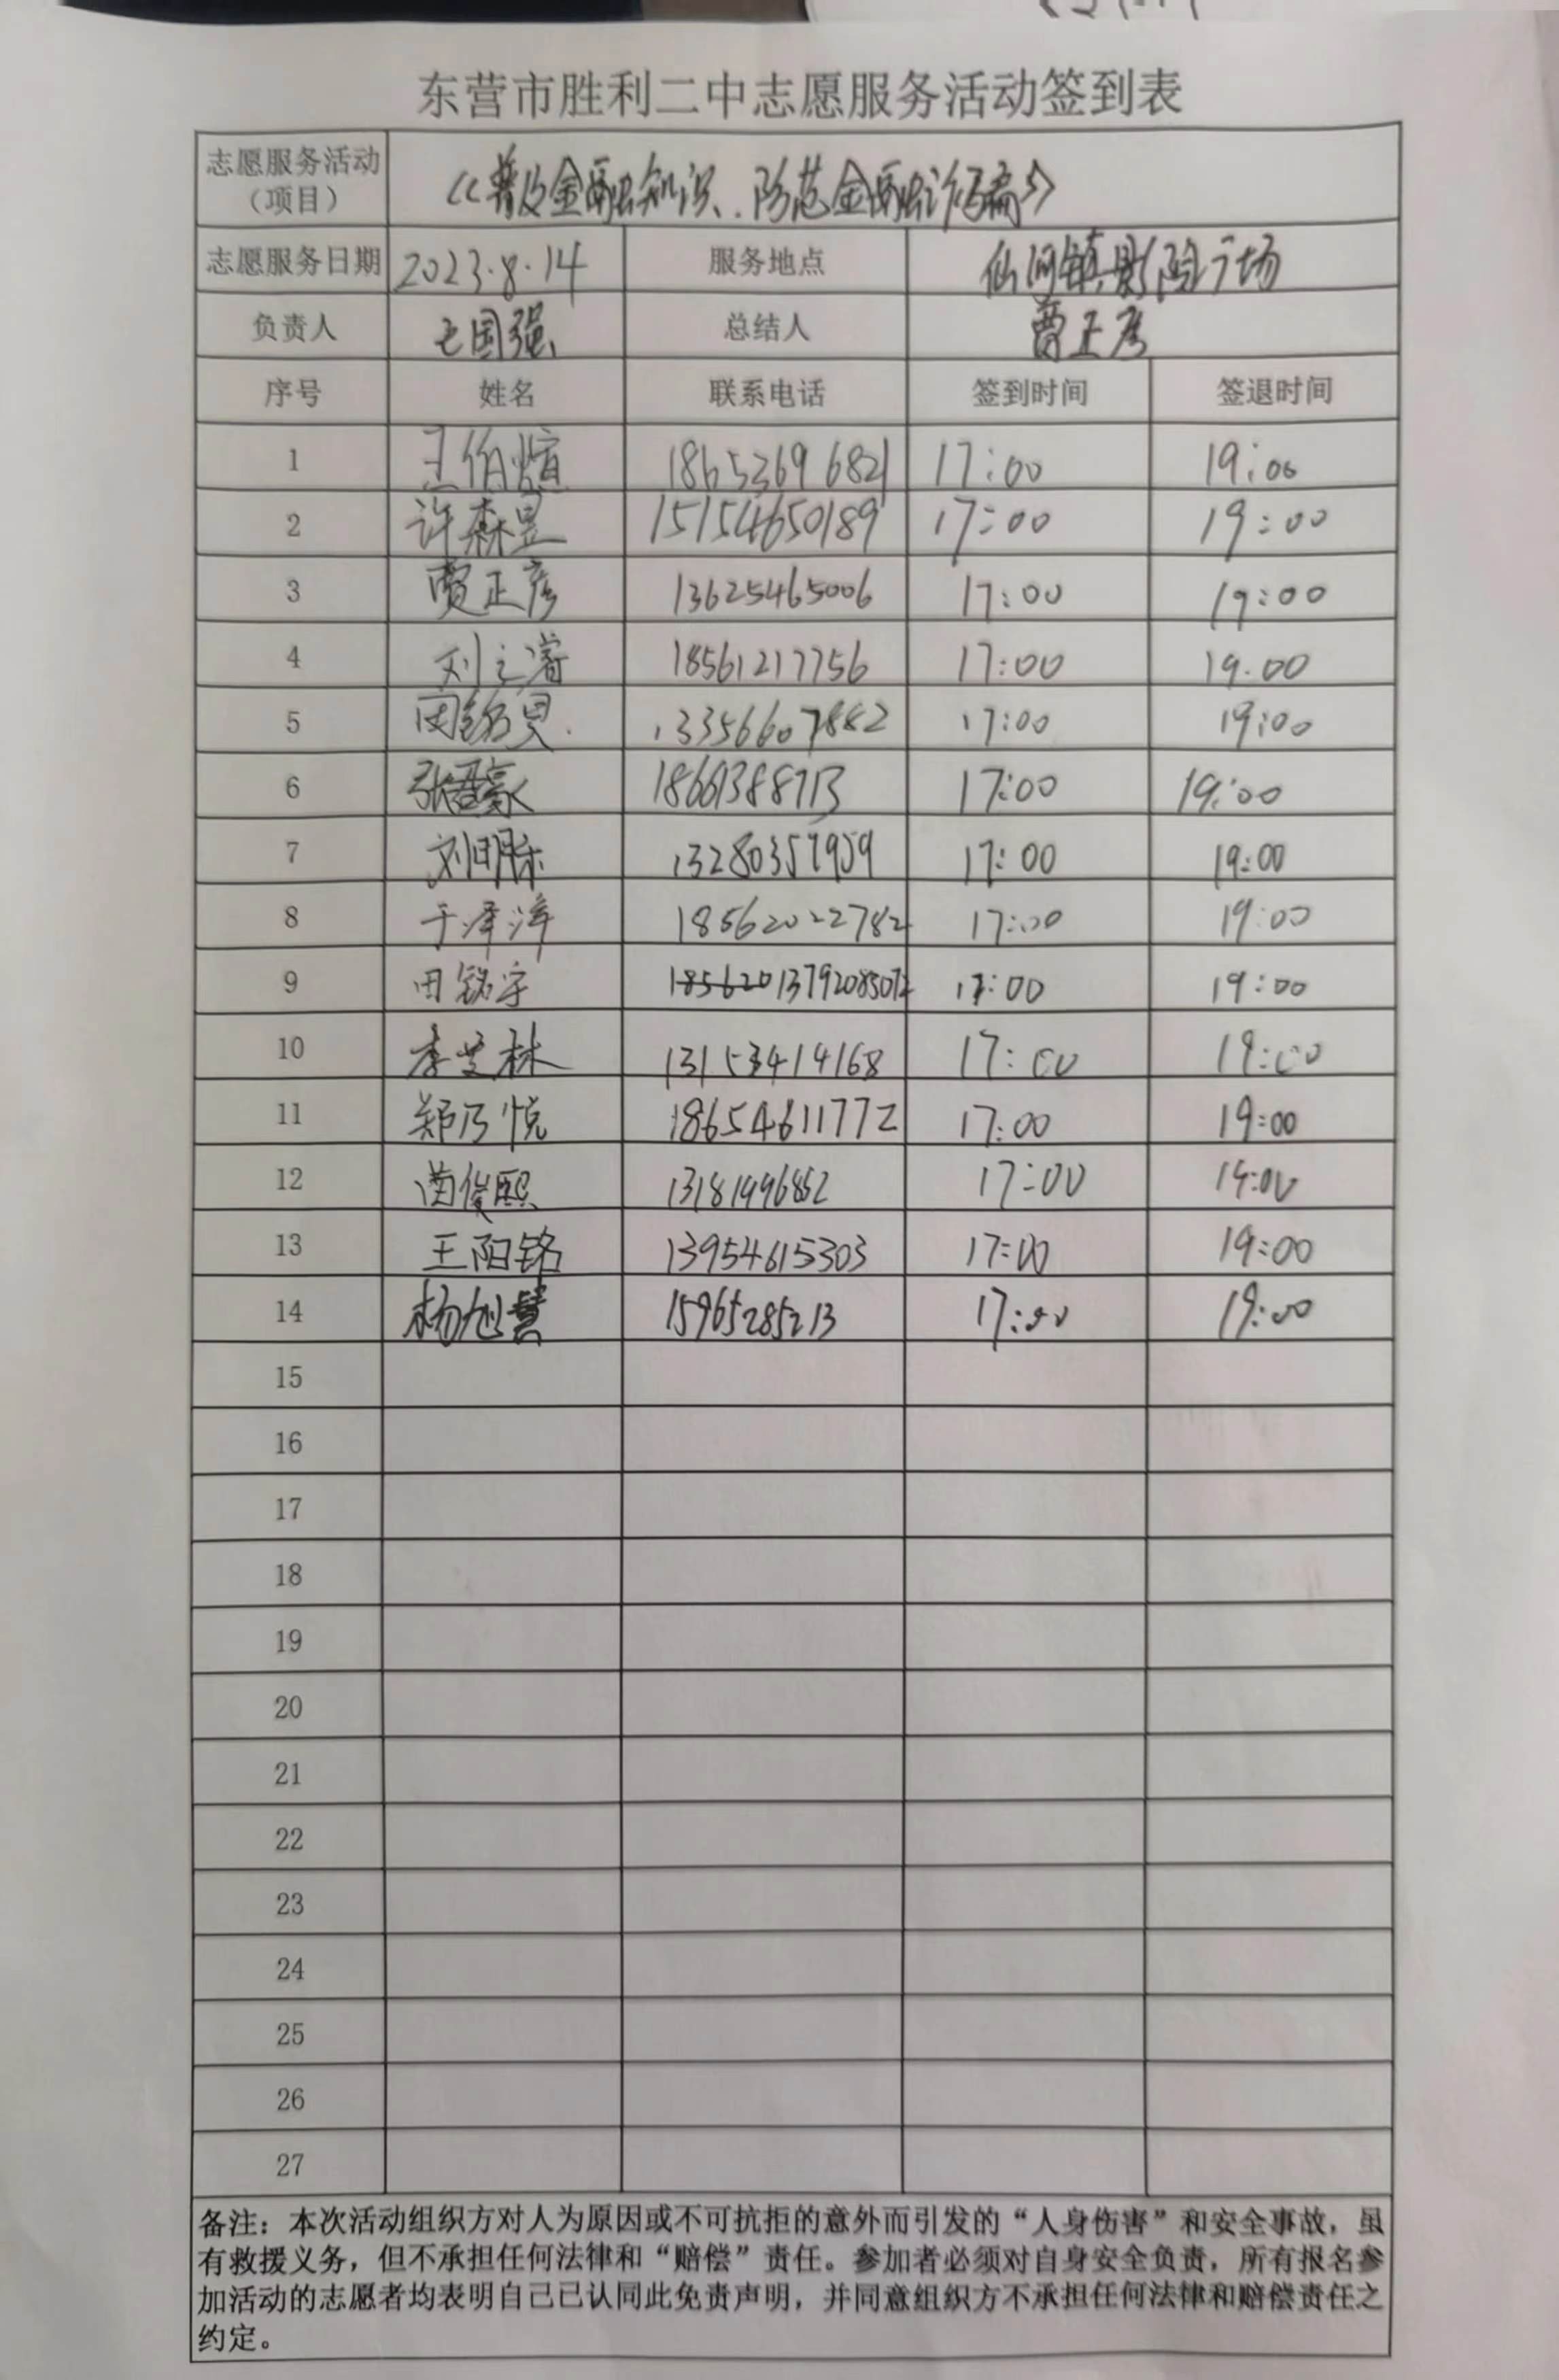 东营市胜利二中志愿服务活动签到表
志愿服务活动（项目） 《普及金融知识、防范金融诈骗》
志愿服务日期 2023.8.14 服务地点 仙河镇影院广场
负责人 王国强 总结人 贾正彦
序号 姓名 联系电话 签到时间 签退时间
1 王伯煊 18653696821 17:00 19:00
2 许森昱 15154650189 17:00 19:00
3 贾正彦 13625465006 17:00 19:00
4 刘之睿 18561217756 17:00 19.00
5 13356607882 17:00 19:00
6 张君豪 18661388713 17:00 19:00
7 刘明乐 13280357959 17:00 19:00
8 于泽洋 18562022782 17:00 19:00
9 田铭宇 185620 13792085072 17:00 19:00
10 李芝林 13153414168 17:00 19:00
11 郑乃悦 18654611772 17:00 19:00
12 苗俊熙 13181996852 17:00 19:00
13 王阳铭 13954615303 17:00 19:00
14 杨旭慧 15965285213 17:00 19:00
15
16
17
18
19
20
21
22
23
24
25
26
27
备注：本次活动组织方对人为原因或不可抗拒的意外而引发的“人身伤害”和安全事故，虽
有救援义务，但不承担任何法律和“赔偿”责任。参加者必须对自身安全负责，所有报名参
加活动的志愿者均表明自己已认同此免责声明，并同意组织方不承担任何法律和赔偿责任之
约定。